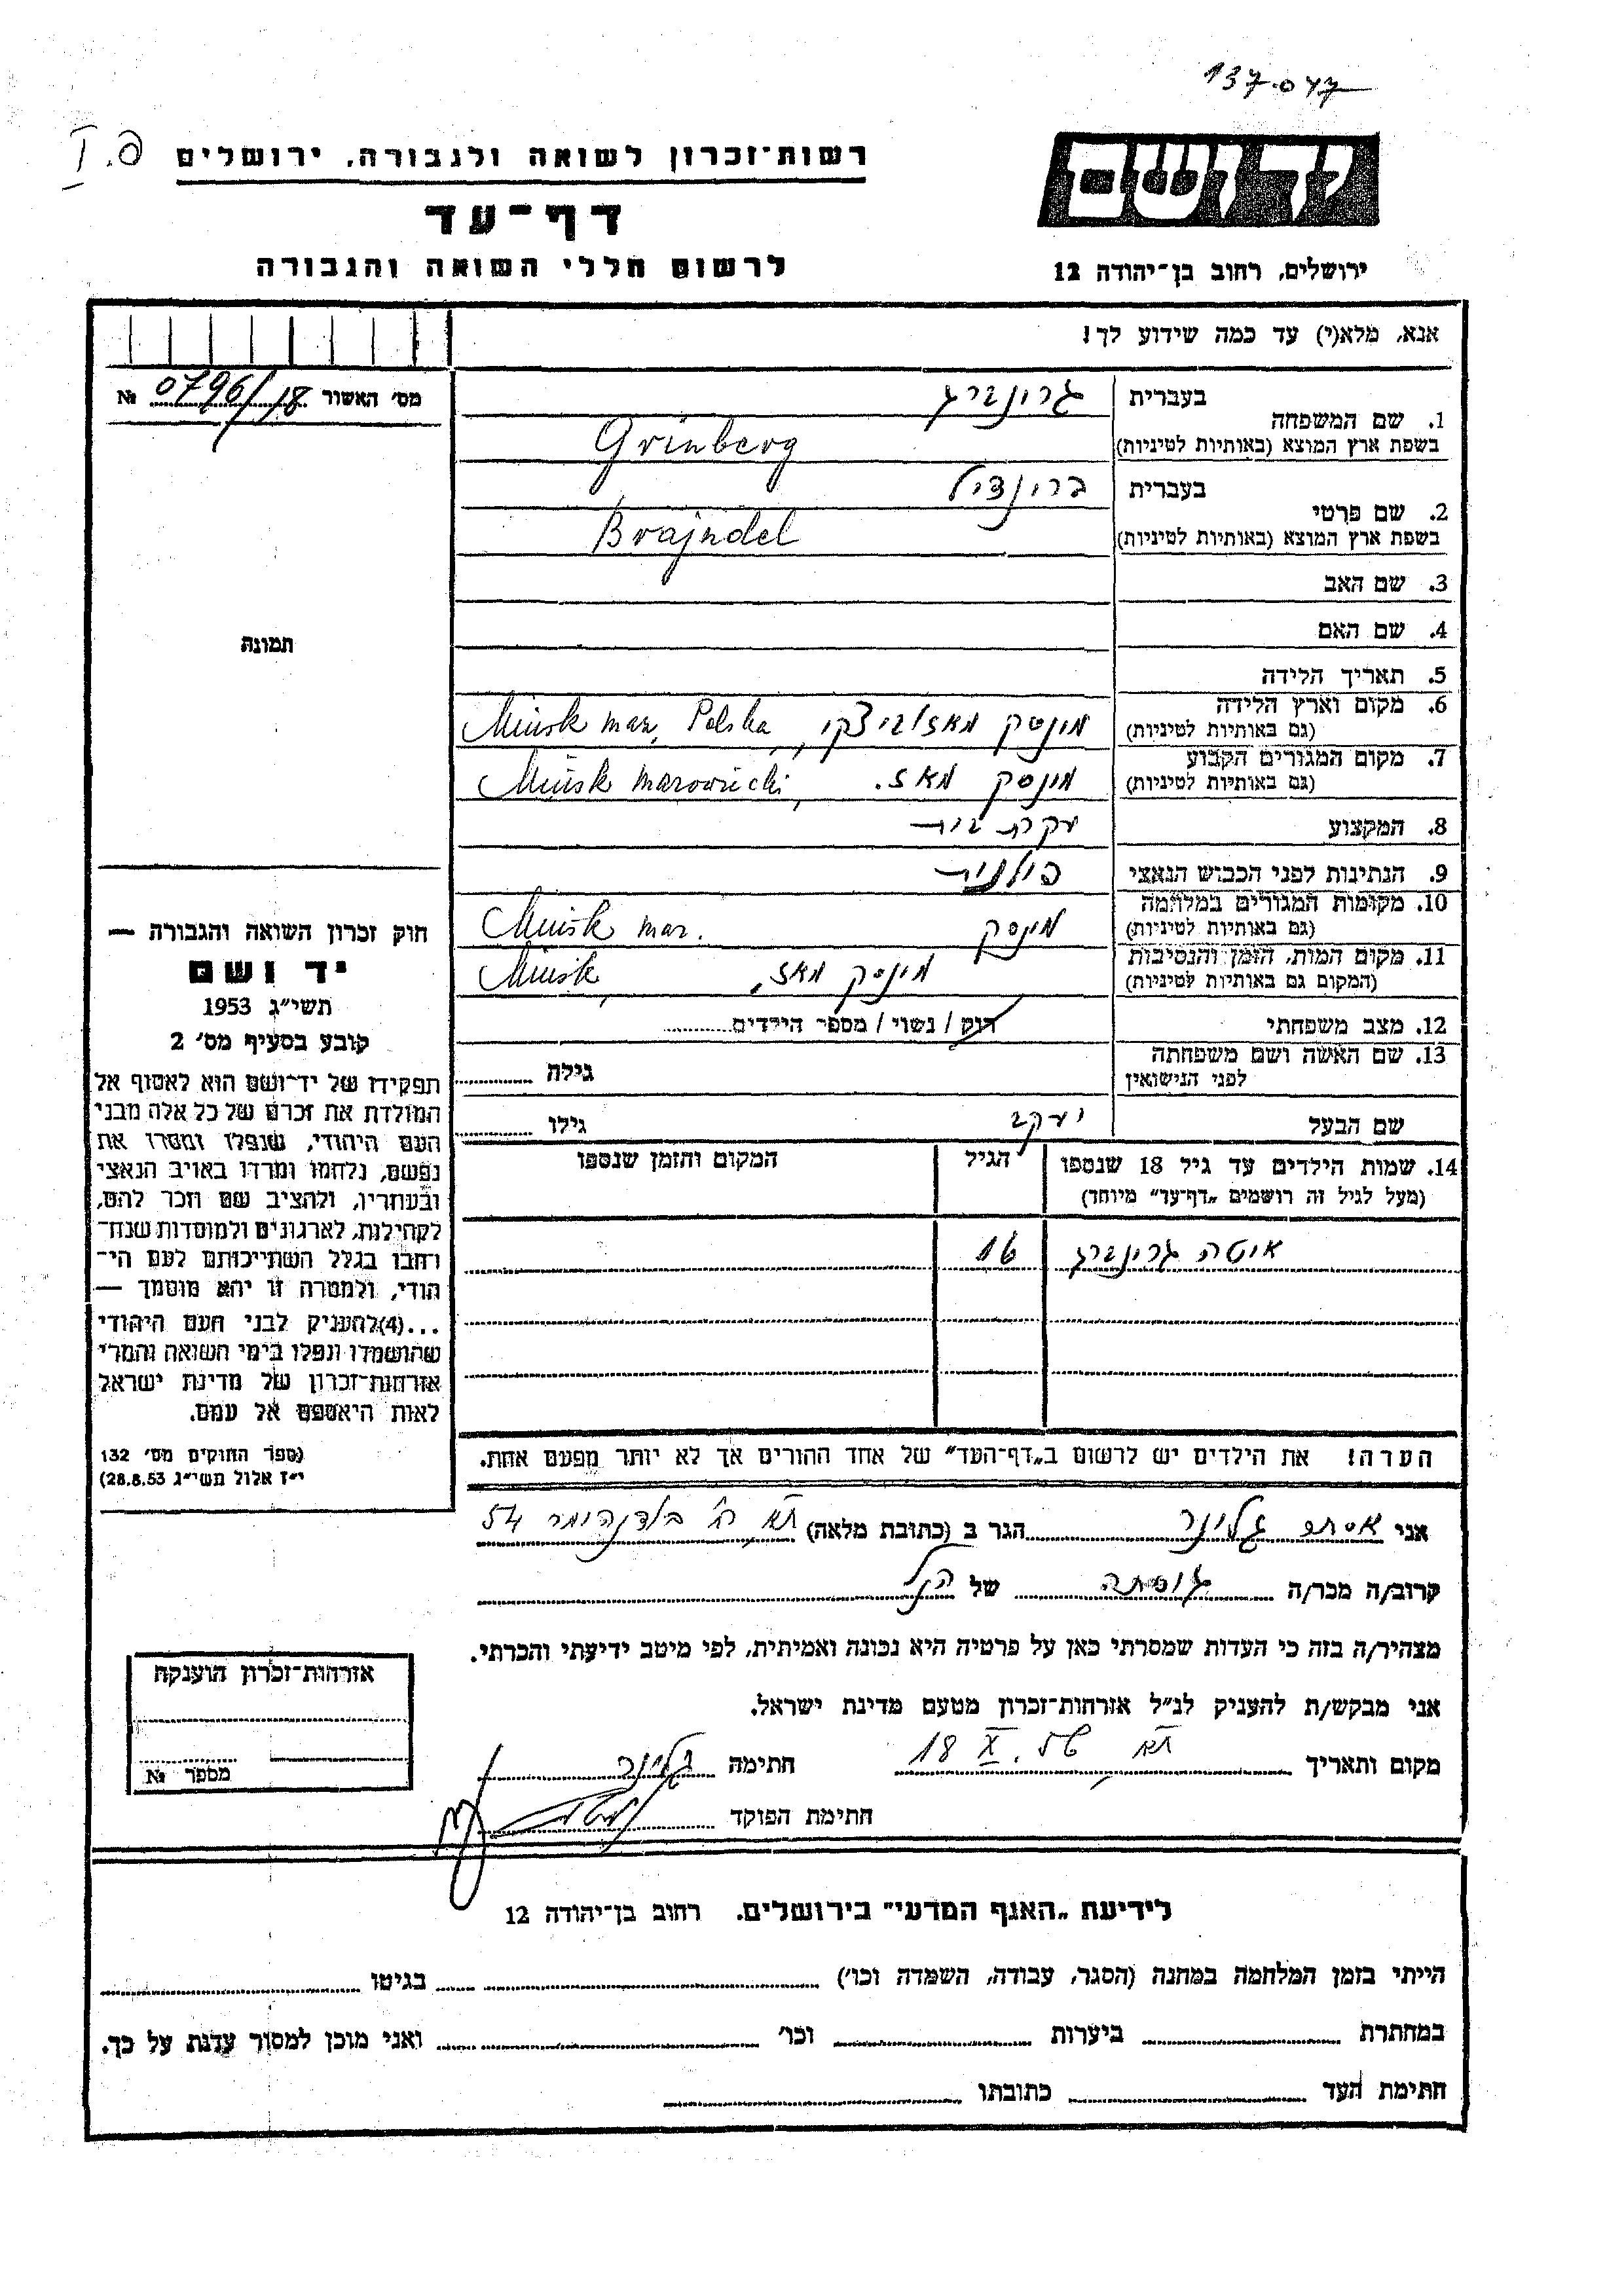 137.047
I.פ
רשות־זכרון לשואה ולגבורה. ירושלים
יד ושם
דף־עד
לרשום חללי השואה והגבורה
ירושלים, רחוב בן־יהודה 12
אנא, מלא(י) עד כמה שידוע לך!
מס׳ האשור 0796/18 №
1. שם המשפחה
בעברית גרונברג
בשפת ארץ המוצא (באותיות לטיניות) Grinberg
2. שם פרטי
בעברית ברינדיל
בשפת ארץ המוצא (באותיות לטיניות) Brajndel
3. שם האב
4. שם האם
תמונה
5. תאריך הלידה
6. מקום וארץ הלידה
(גם באותיות לטיניות) מינסק מאזוביצקי, Mińsk maz, Polska
7. מקום המגורים הקבוע
(גם באותיות לטיניות) מינסק מאז. Mińsk mazowiecki,
8. המקצוע עקרת בית
9. הנתינות לפני הכבוש הנאצי פולנית
10. מקומות המגורים במלחמה
(גם באותיות לטיניות) מינסק Mińsk maz.
11. מקום המות, הזמן והנסיבות
(המקום גם באותיות לטיניות) מינסק מאז. Mińsk,
12. מצב משפחתי רוק / נשוי / מספר הילדים
13. שם האשה ושם משפחתה
לפני הנישואין גילה
שם הבעל יעקב גילו
14. שמות הילדים עד גיל 18 שנספו הגיל המקום והזמן שנספו
(מעל לגיל זה רושמים „דף־עד״ מיוחד)
איטה גרינברג 16
הערה! את הילדים יש לרשום ב„דף־העד״ של אחד ההורים אך לא יותר מפעם אחת.
חוק זכרון השואה והגבורה —
יד ושם
תשי״ג 1953
קובע בסעיף מס׳ 2
תפקידו של יד־ושם הוא לאסוף אל
המולדת את זכרם של כל אלה מבני
העם היהודי, שנפלו ומסרו את
נפשם, נלחמו ומרדו באויב הנאצי
ובעוזריו, ולהציב שם וזכר להם,
לקהילות, לארגונים ולמוסדות שנח־
רחבו בגלל השתייכותם לעם הי־
הודי, ולמטרה זו יהא מוסמך —
...(4)להעניק לבני העם היהודי
שהושמדו ונפלו בימי השואה והמרי
אזרחות־זכרון של מדינת ישראל
לאות היאספם אל עמם.
(ספר החוקים מס׳ 132
י״ז אלול תשי״ג 28.8.53)
אני אסתר גלינר הגר ב (כתובת מלאה) ת״א 54
קרוב/ה מכר/ה גיסתה של הנ״ל
מצהיר/ה בזה כי העדות שמסרתי כאן על פרטיה היא נכונה ואמיתית, לפי מיטב ידיעתי והכרתי.
אני מבקש/ת להעניק לנ״ל אזרחות־זכרון מטעם מדינת ישראל.
מקום ותאריך ת״א 18 X. 56 חתימה גלינר
חתימת הפוקד
אזרחות־זכרון הוענקה
מספר №
לידיעת „האגף המדעי״ בירושלים. רחוב בן־יהודה 12
הייתי בזמן המלחמה במחנה (הסגר, עבודה, השמדה וכו׳) בגיטו
במחתרת ביערות וכו׳ ואני מוכן למסור עדות על כך.
חתימת העד כתובתו